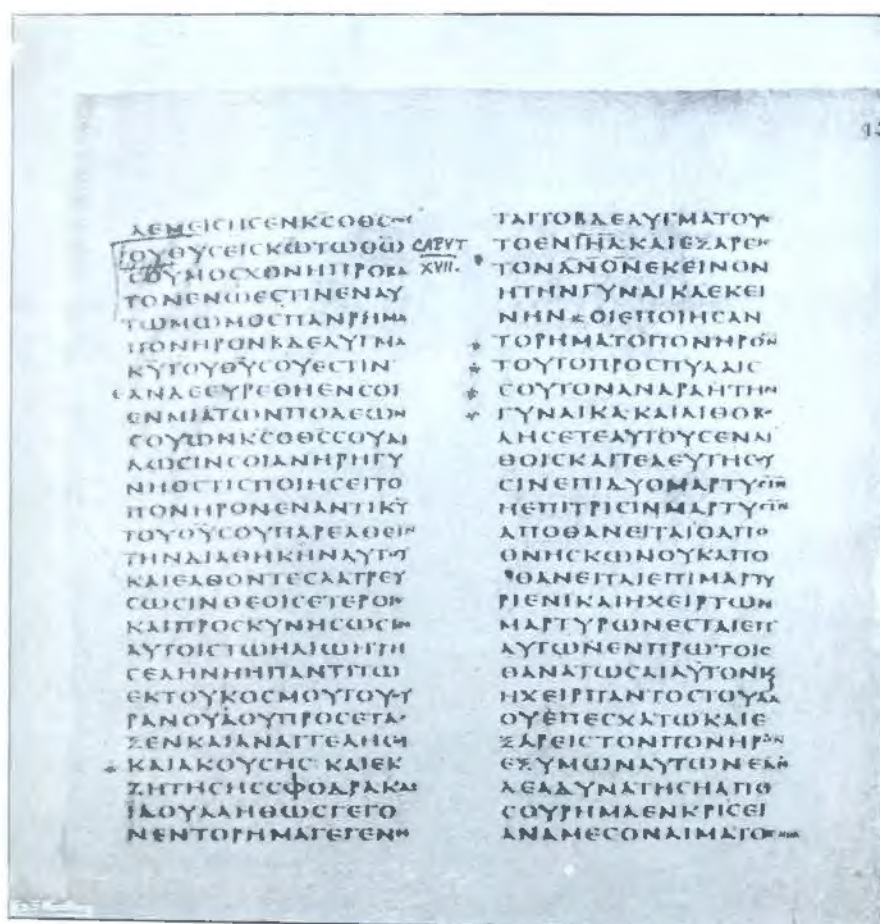 ΛΕΜΕΙCΗCΕΝΚCΟΘC
ΟΥΘΥCΕΙCΚΩΤΩΘΩ
CΟΥΜΟCΧΟΝΗΠΡΟΒΑ
ΤΟΝΕΝΩΕCΤΙΝΕΝΑΥ
ΤΩΜΩΜΟCΠΑΝΡΗΜΑ
ΠΟΝΗΡΟΝΒΔΕΛΥΓΜΑ
ΚΥΤΟΥΘΥCΟΥΕCΤΙΝ
ΕΑΝΔΕΕΥΡΕΘΗΕΝCΟΙ
ΕΝΜΙΑΤΩΝΠΟΛΕΩΝ
CΟΥΩΝΚCΟΘCCΟΥΔΙ
ΔΩCΙΝCΟΙΑΝΗΡΗΓΥ
ΝΗΟCΤΙCΠΟΙΗCΕΙΤΟ
ΠΟΝΗΡΟΝΕΝΑΝΤΙΚΥ
ΤΟΥΘΥCΟΥΠΑΡΕΛΘΕΙΝ
ΤΗΝΔΙΑΘΗΚΗΝΑΥΤΟΥ
ΚΑΙΕΛΘΟΝΤΕCΛΑΤΡΕΥ
CΩCΙΝΘΕΟΙCΕΤΕΡΟΙC
ΚΑΙΠΡΟCΚΥΝΗCΩCΙΝ
ΑΥΤΟΙCΤΩΗΛΙΩΗΤΗ
CΕΛΗΝΗΗΠΑΝΤΙΤΩ
ΕΚΤΟΥΚΟCΜΟΥΤΟΥΟΥ
ΡΑΝΟΥΑΟΥΠΡΟCΕΤΑ
ΞΕΝΚΑΙΑΝΑΓΓΕΛΗCΟΙ
※ ΚΑΙΑΚΟΥCΗC: ΚΑΙΕΚ
ΖΗΤΗCΗCCΦΟΔΡΑΚΑΙ
ΙΔΟΥΑΛΗΘΩCΓΕΓΟ
ΝΕΝΤΟΡΗΜΑΓΕΓΕΝΗ
CAPVT
XVII.
ΤΑΙΤΟΒΔΕΛΥΓΜΑΤΟΥ
ΤΟΕΝΙΗΛ·ΚΑΙΕΞΑΡΕΙC
ΤΟΝΑΝΟΝΕΚΕΙΝΟΝ
ΗΤΗΝΓΥΝΑΙΚΑΕΚΕΙ
ΝΗΝ※ΟΙΕΠΟΙΗCΑΝ
※ ΤΟΡΗΜΑΤΟΠΟΝΗΡΟΝ
※ ΤΟΥΤΟΠΡΟCΠΥΛΑΙC
※ CΟΥΤΟΝΑΝΔΡΑΗΤΗΝ
※ ΓΥΝΑΙΚΑ:ΚΑΙΛΙΘΟΒΟ
ΛΗCΕΤΕΑΥΤΟΥCΕΝΛΙ
ΘΟΙCΚΑΙΤΕΛΕΥΤΗCΟΥ
CΙΝΕΠΙΔΥΟΜΑΡΤΥCΙΝ
ΗΕΠΙΤΡΙCΙΝΜΑΡΤΥCΙΝ
ΑΠΟΘΑΝΕΙΤΑΙΟΑΠΟ
ΘΝΗCΚΩΝΟΥΚΑΠΟ
ΘΑΝΕΙΤΑΙΕΠΙΜΑΡΤΥ
ΡΙΕΝΙΚΑΙΗΧΕΙΡΤΩΝ
ΜΑΡΤΥΡΩΝΕCΤΑΙΕΠ
ΑΥΤΩΝΕΝΠΡΩΤΟΙC
ΘΑΝΑΤΩCΑΙΑΥΤΟΝΚ
ΗΧΕΙΡΠΑΝΤΟCΤΟΥΛΑ
ΟΥΕΠΕCΧΑΤΩΚΑΙΕ
ΞΑΡΕΙCΤΟΝΠΟΝΗΡΟΝ
ΕΞΥΜΩΝΑΥΤΩΝΕΑΝ
ΔΕΑΔΥΝΑΤΗCΗΑΠΟ
CΟΥΡΗΜΑΕΝΚΡΙCΕΙ
ΑΝΑΜΕCΟΝΑΙΜΑΤΟC